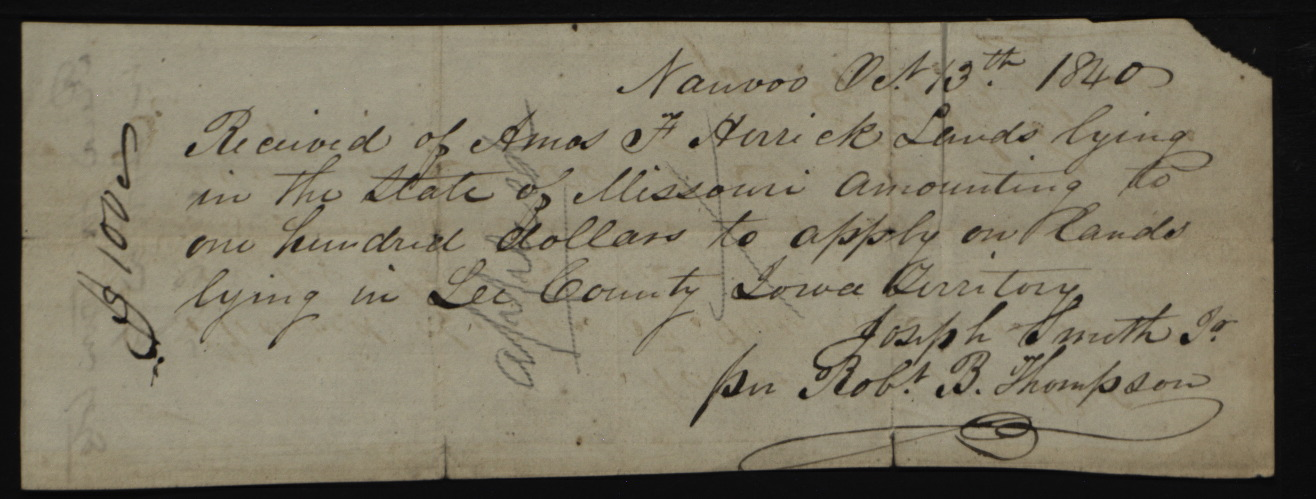 Nauvoo Oct 13th. 1840
Received of Amos F Herrick Lands lying
in the State of Missouri amounting to
one hundred dollars to apply on lands
lying in Lee County Iowa Territory
Joseph Smith Jr.
per Robt. B. Thompson
$100